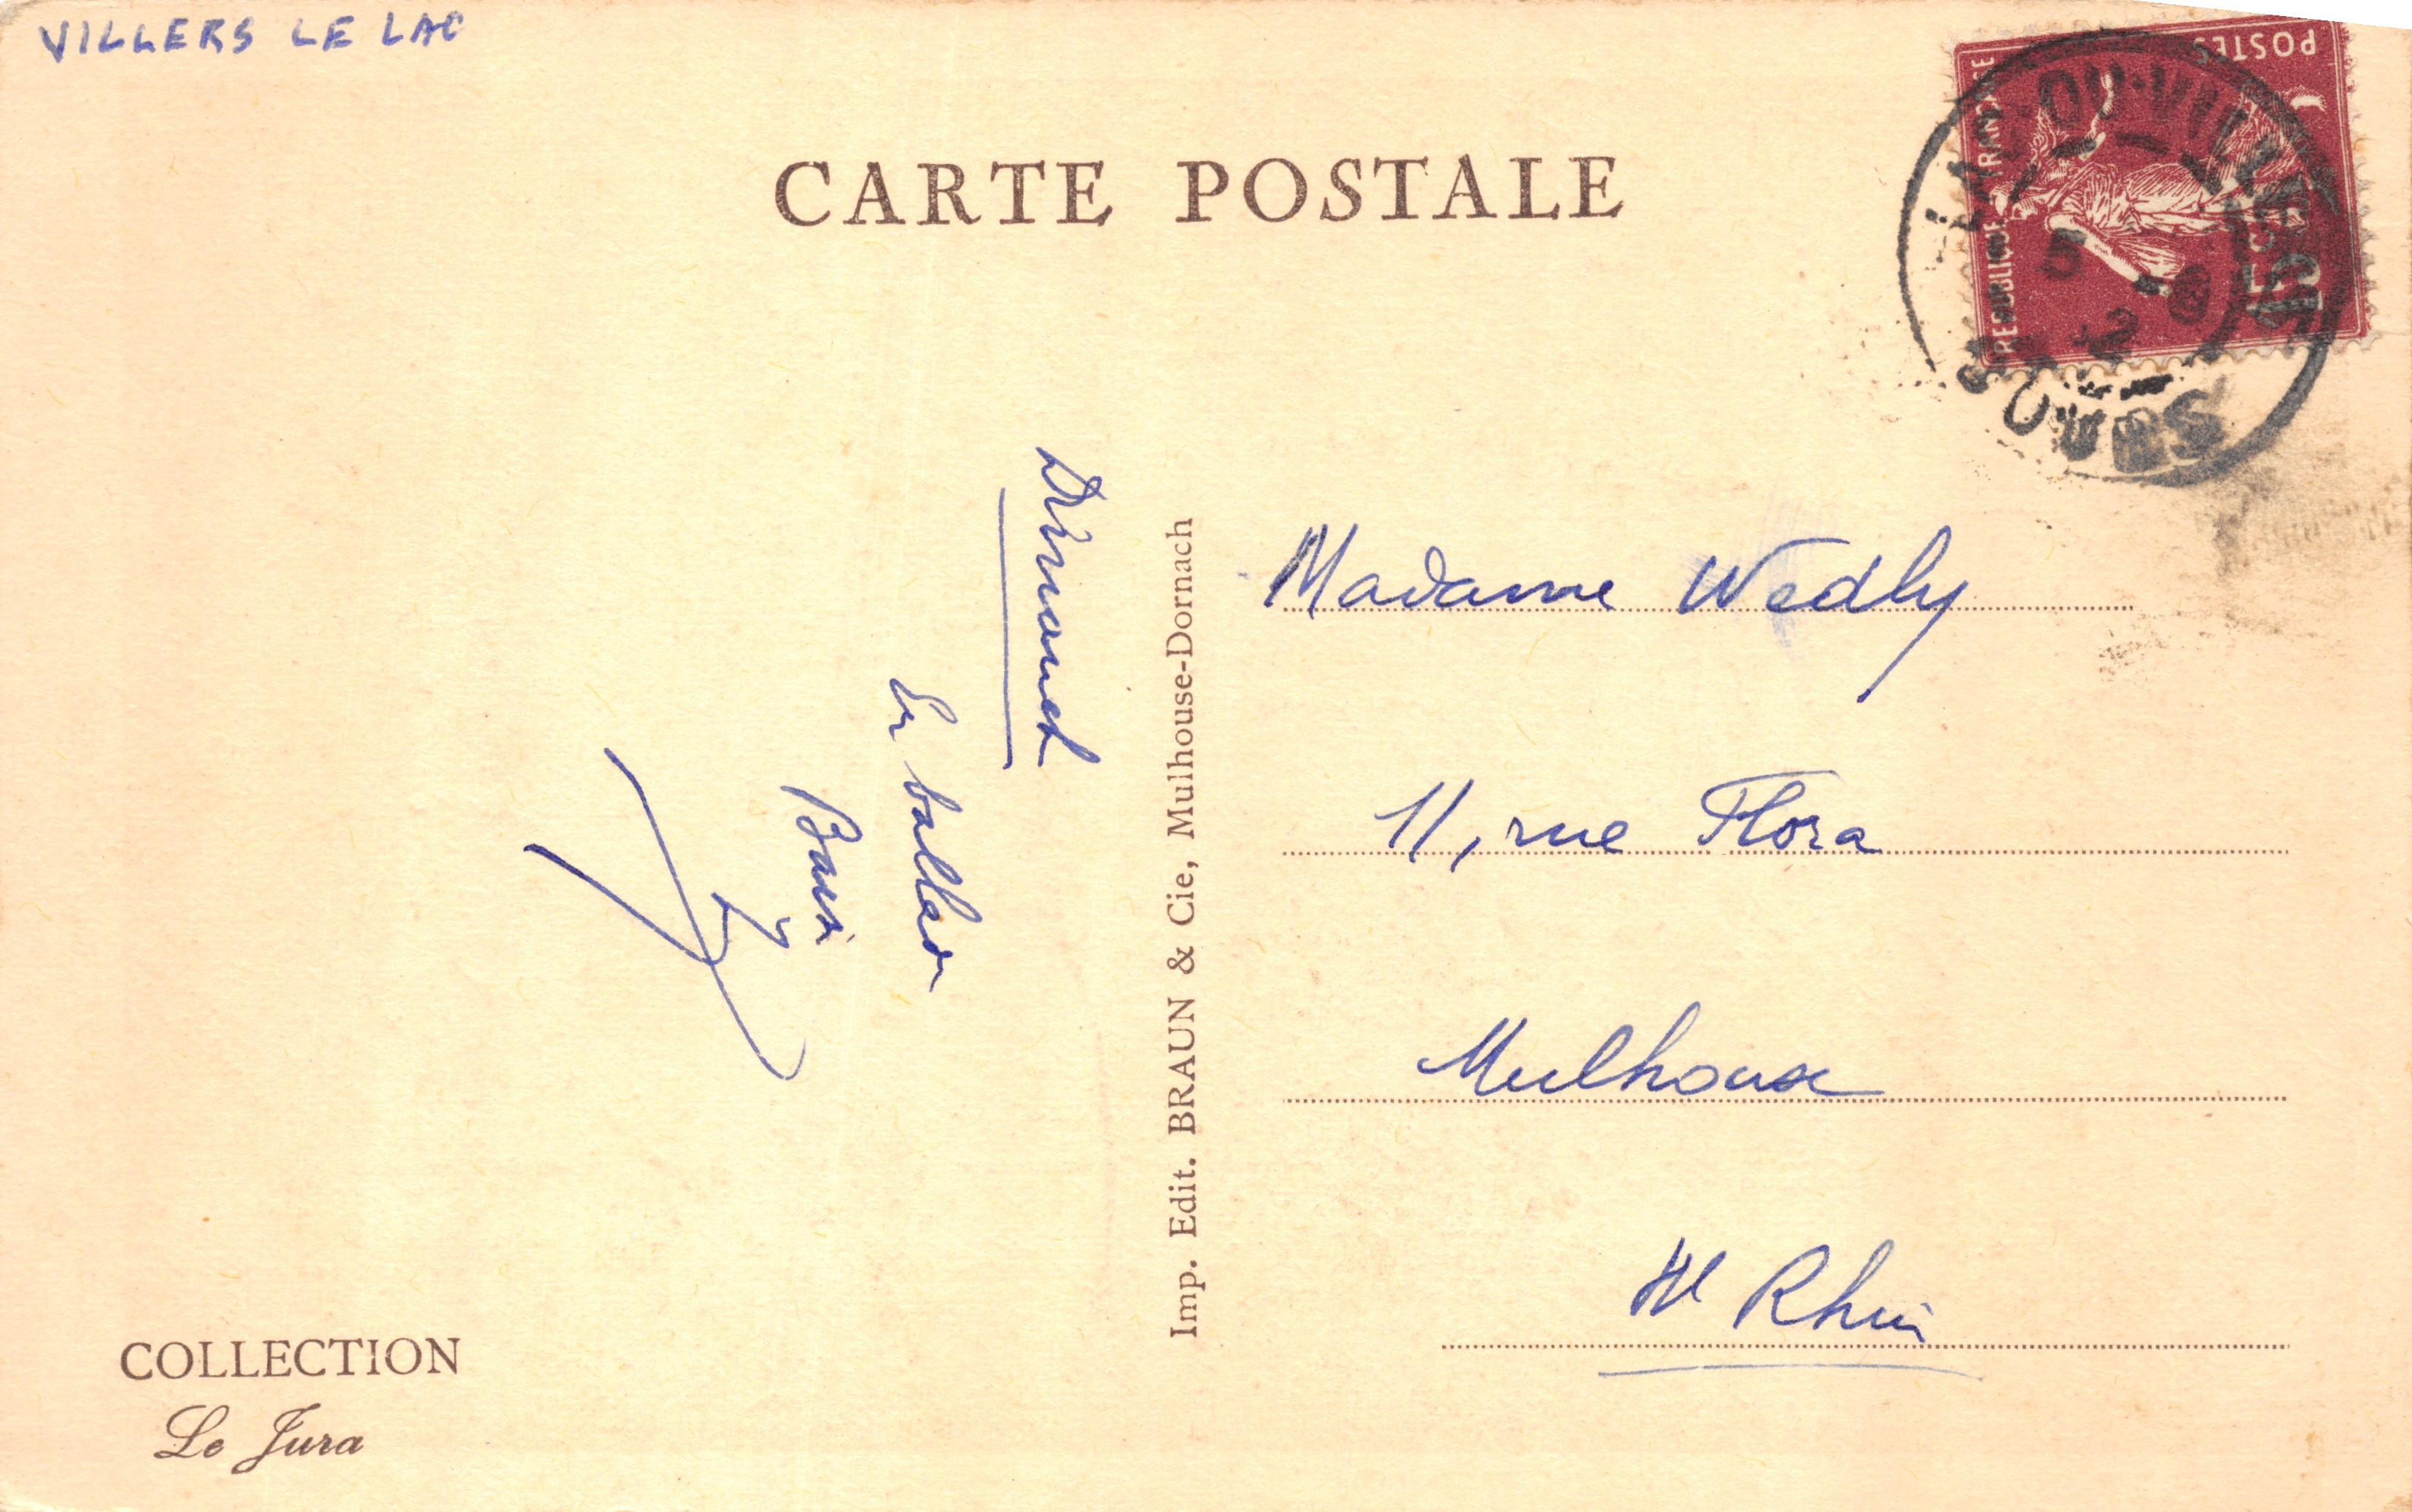 VILLERS LE LAC
CARTE POSTALE
POSTES
REPUBLIQUE FRANÇAISE
15 C
LAC-OU-VILLERS
DOUBS
Dimanch
En ballade
Imp. Edit. BRAUN & Cie, Mulhouse-Dornach
Madame Wedly
11, rue Flora
Mulhouse
Ht Rhin
COLLECTION
Le Jura